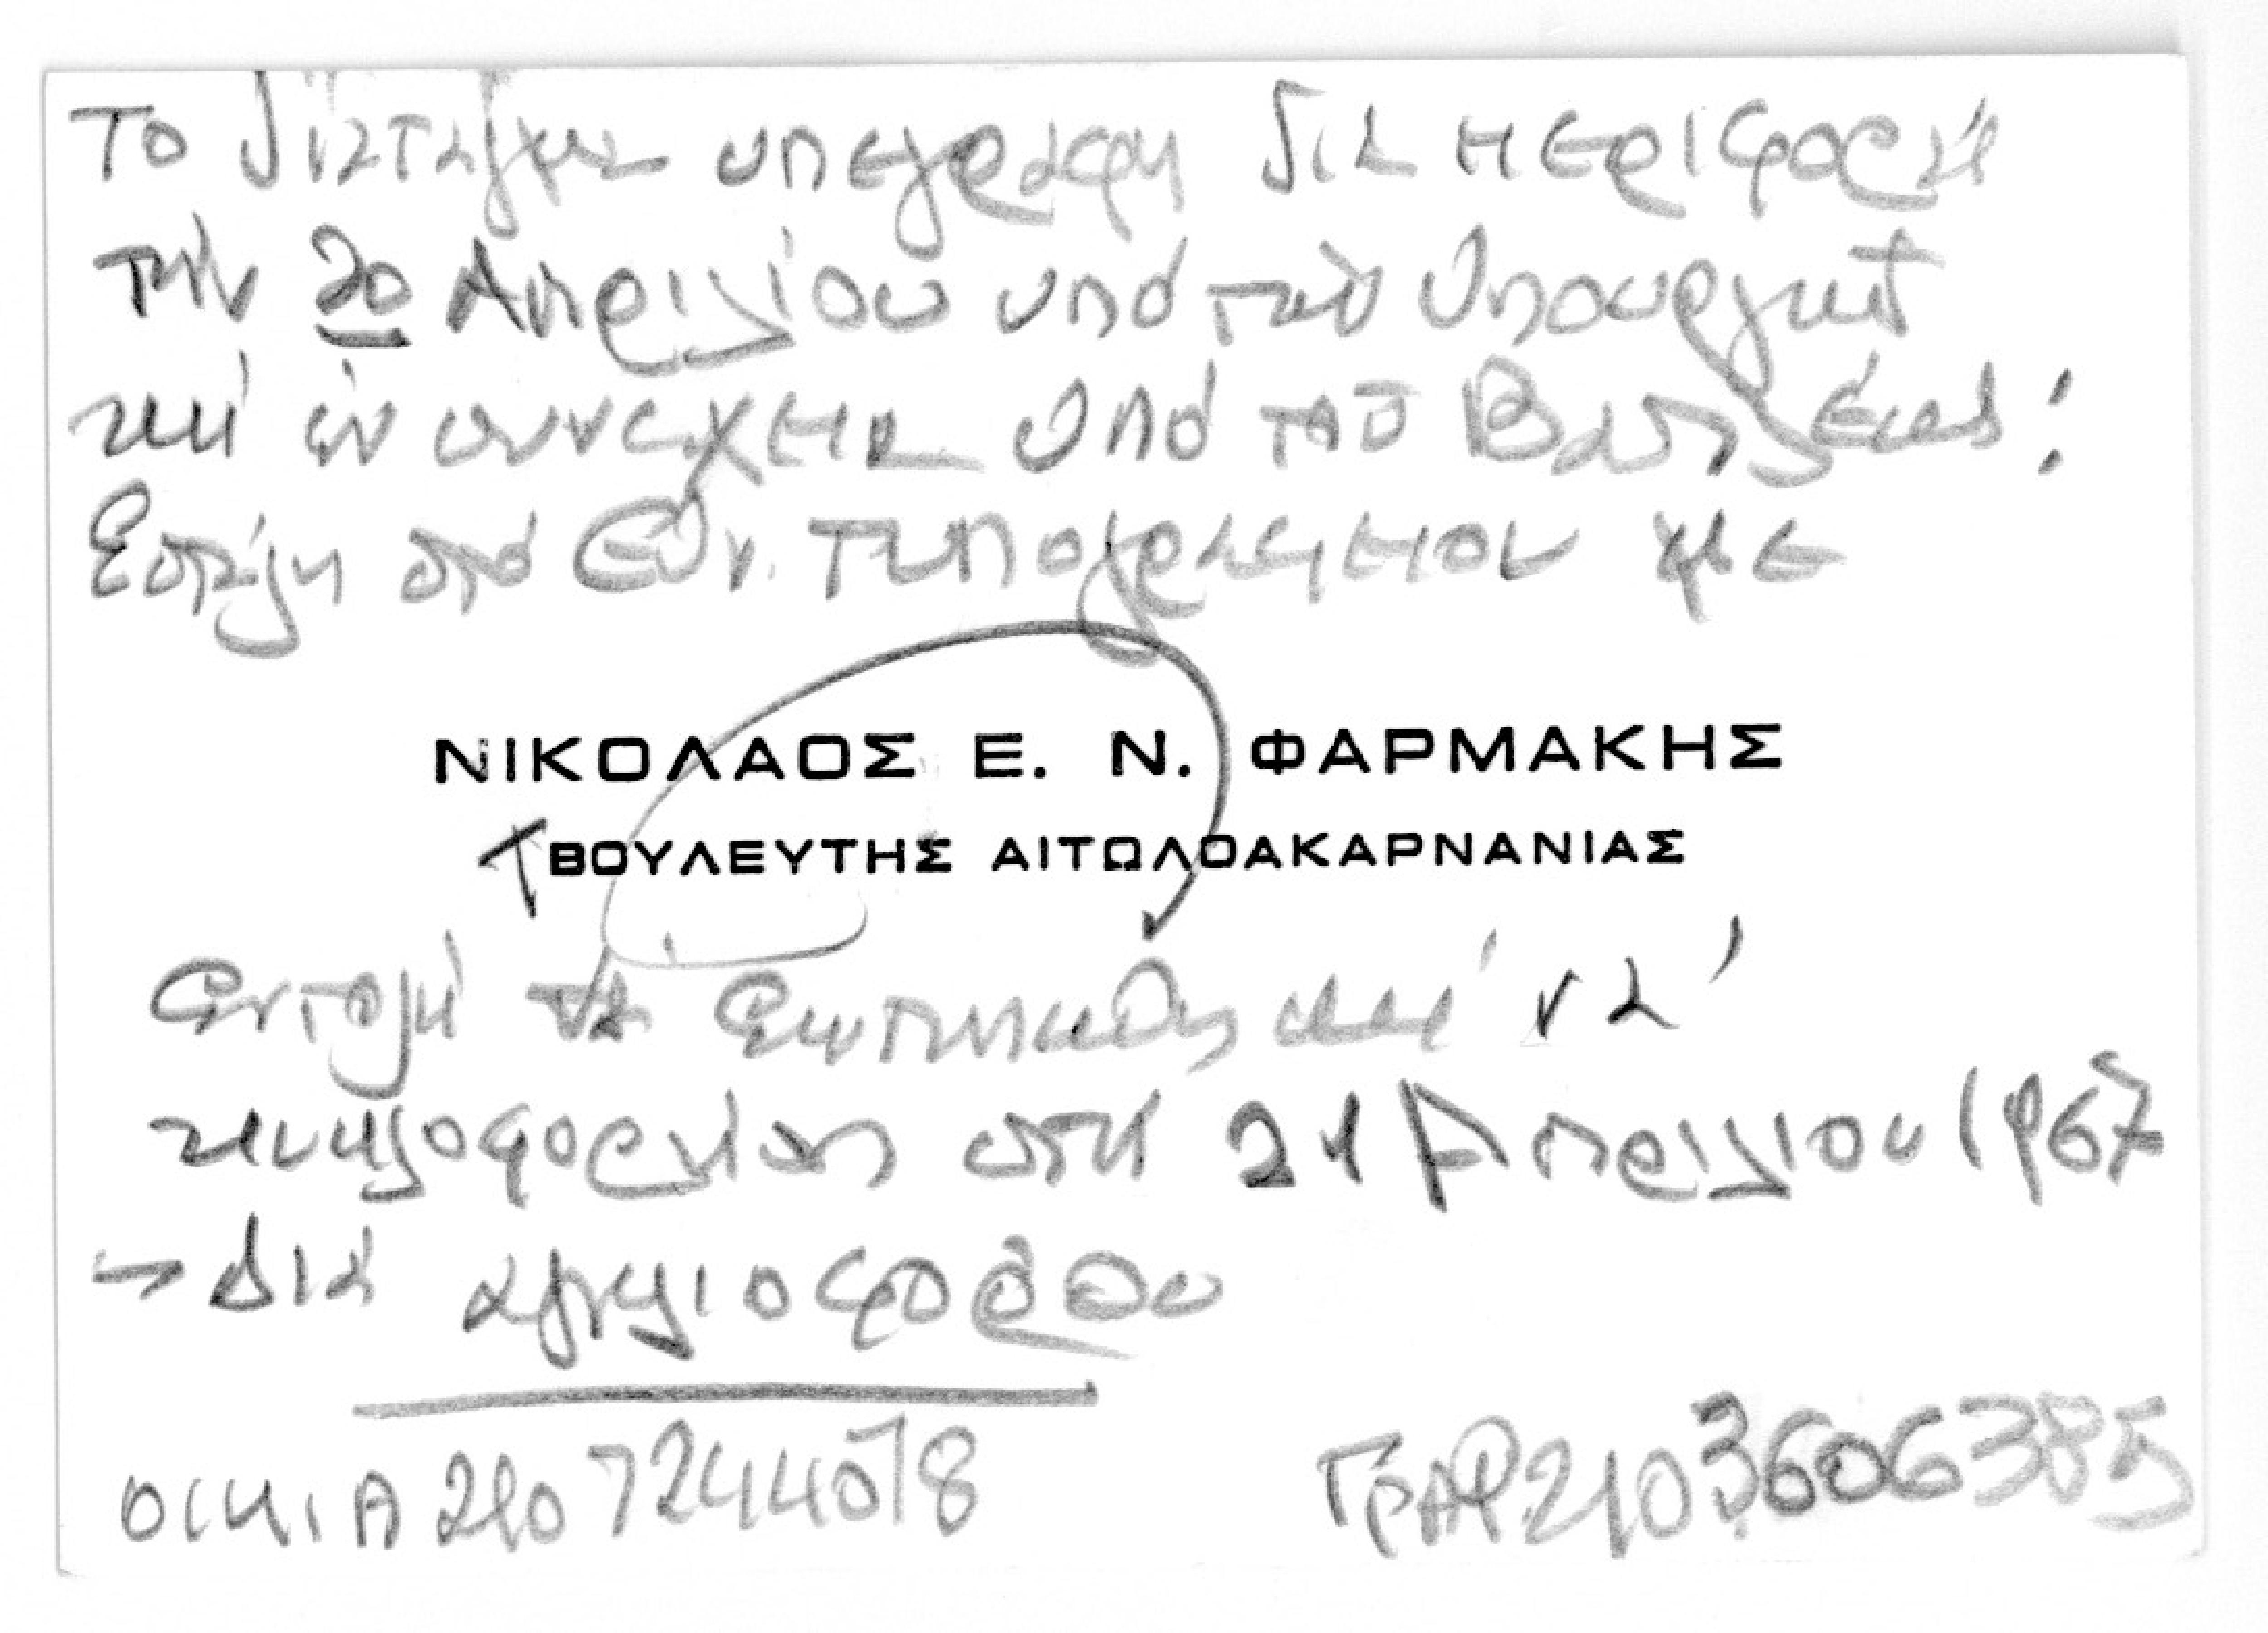 Το διάταγμα υπεγράφη δια περιφορά
την 20 Απριλίου υπό των Υπουργών
καί έν συνεχεία υπό του Βασιλέως!
Εστάλη στό Εθν. Τυπογραφείον με
ΝΙΚΟΛΑΟΣ Ε. Ν. ΦΑΡΜΑΚΗΣ
ΒΟΥΛΕΥΤΗΣ ΑΙΤΩΛΟΑΚΑΡΝΑΝΙΑΣ
Εντολή νά Εκτυπωθη και νά
κυκλοφορήση στη 21 Απριλίου 1967
→ Διά αγγελιοφόρου
ΟΙΚΙΑ 210 7244078
ΓΡΑΦ 210 3606385